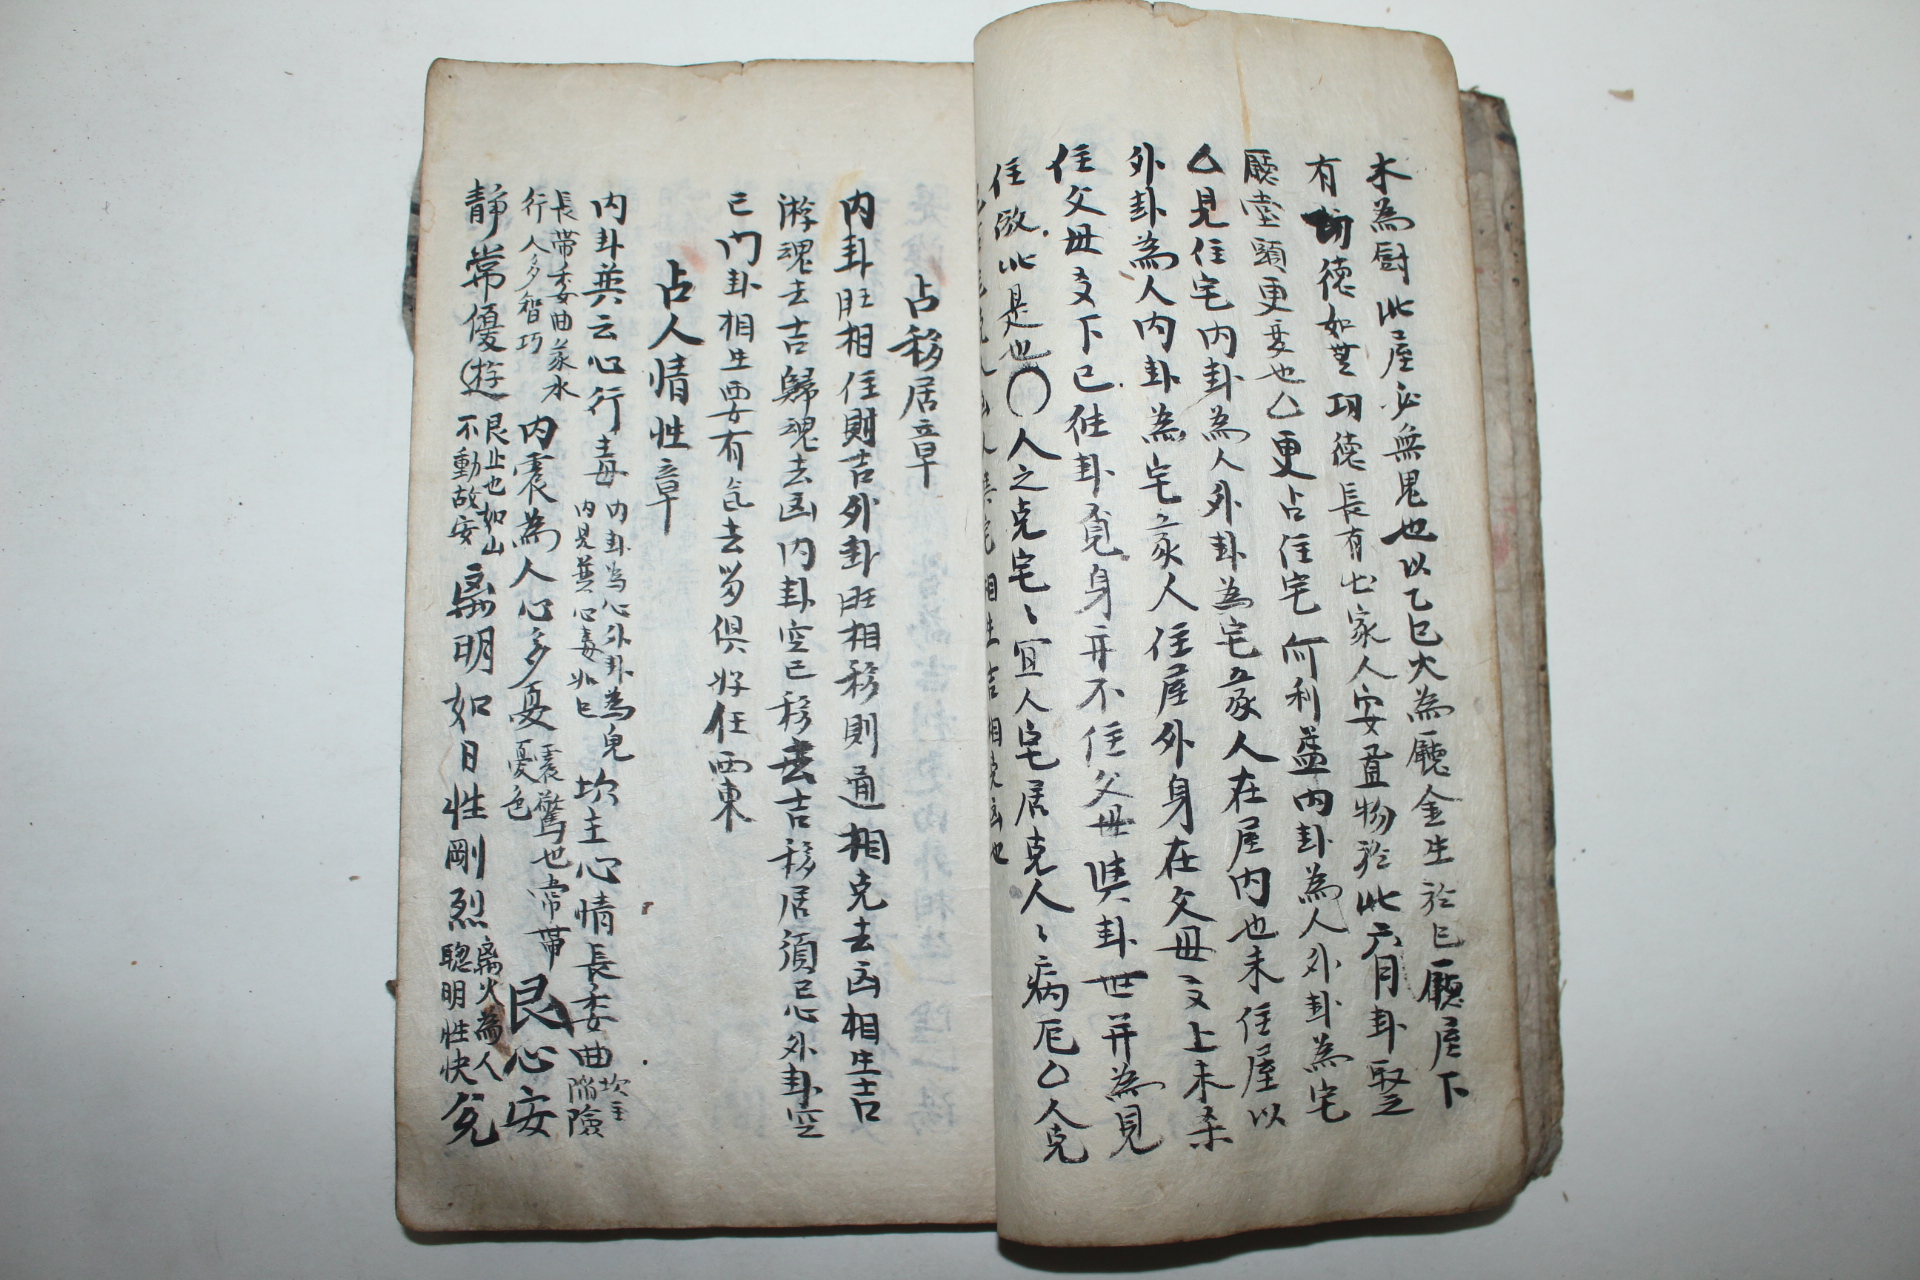 木為厨此屋必無鬼也以乙巳火為廳金生於巳廳屋下
有功德如無功德長有亡家人安置物於此六月卦竪
廳堂頭更憂也〇更占住宅何利益內卦為人外卦為宅
〇見住宅內卦為人外卦為宅家人在屋內也未住屋以
外卦為人內卦為宅家人住屋外身在父母爻上未
住父母爻下已住卦身并不住父母與卦世并為見
住倣此是也〇人之克宅〻宜人宅居克人〻病厄〇人克
相生吉相克凶也
占移居章
內卦旺相住則吉外卦旺相移則通相克去凶相生吉
游魂去吉歸魂去凶內卦空已移去吉移居須忌外卦空
已門卦相生要有氣去留俱好任西東
占人情性章
內卦巽云心行毒
內卦為心外卦為皃
內見巽心毒如巳
坎主心情長委曲
坎主
陷險
長帶委曲象水
行人多智巧
內震為人心多憂
震驚也常帶
憂色
艮心安
靜常優游
艮止也如山
不動故安
离明如日性剛烈
离火為人
聰明性快
兌